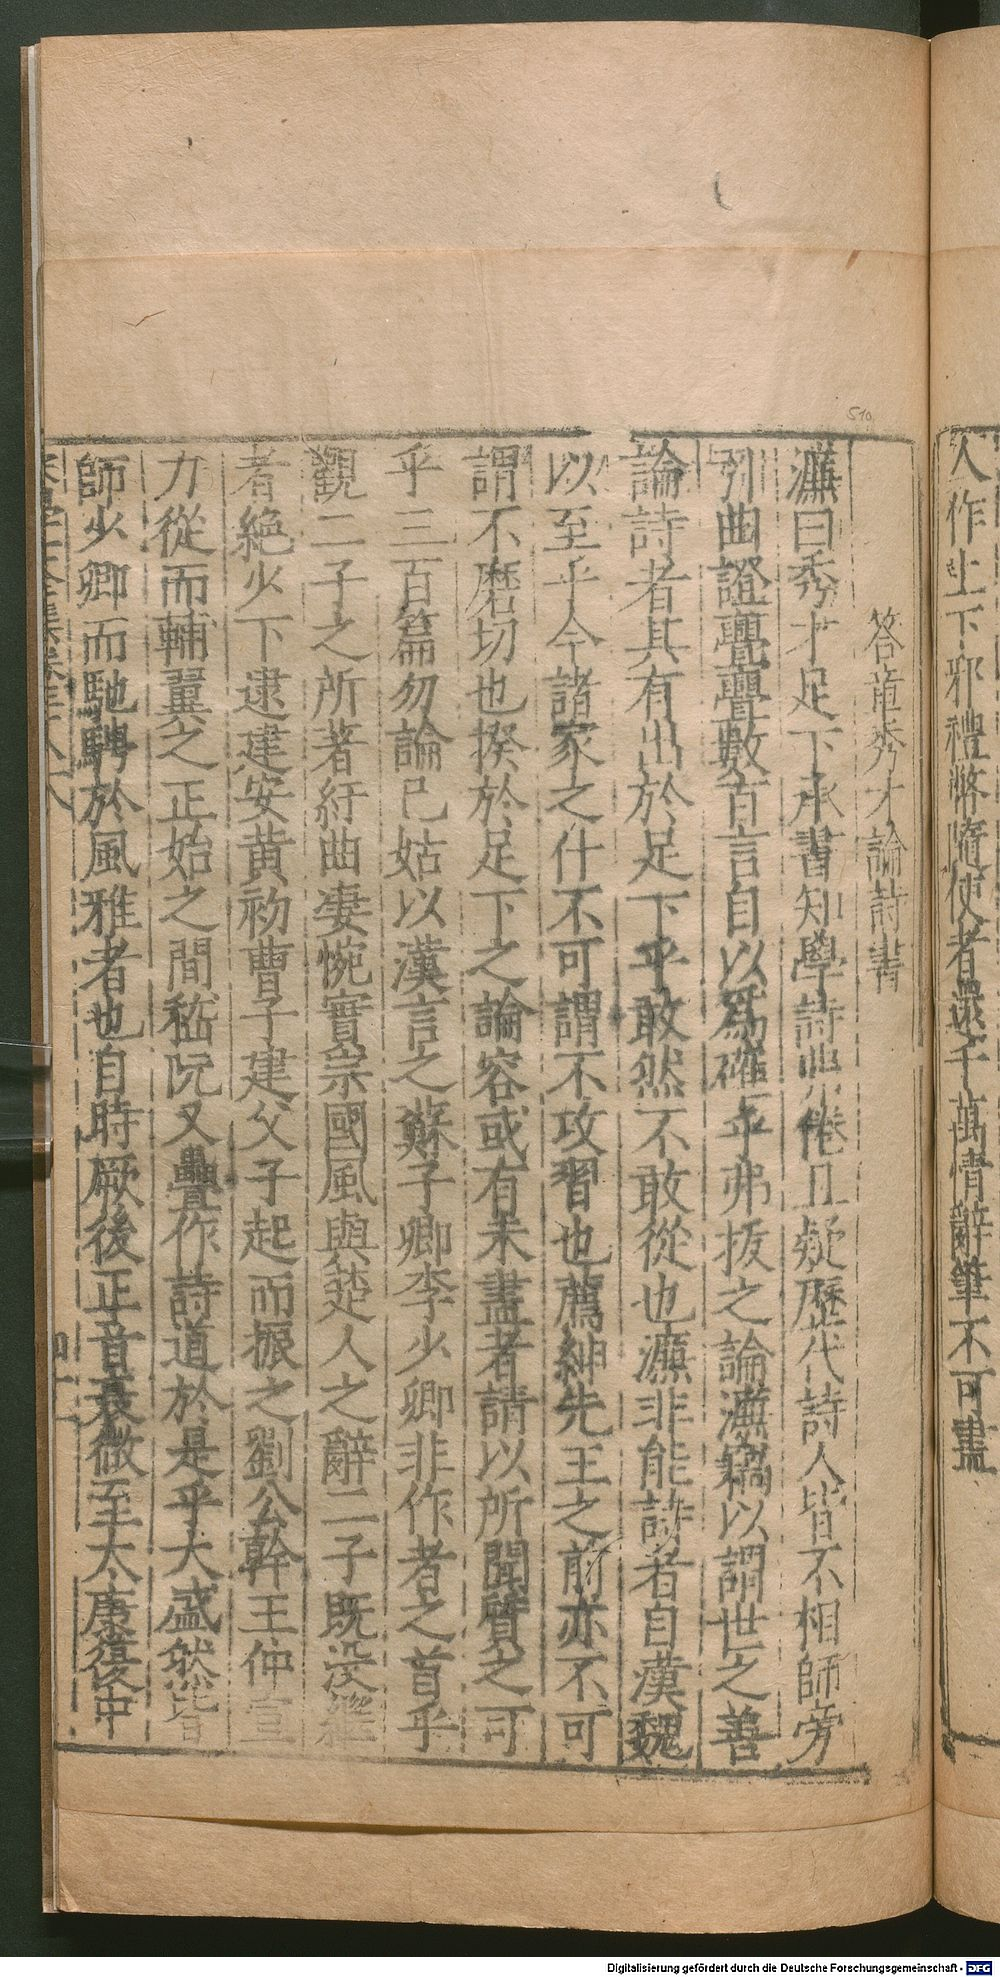 人作上下邪禮幣隨使者還千萬情辭筆不可盡
510
答董秀才論詩書
濂曰秀才足下承書知學詩弗倦且疑歷代詩人皆不相師旁
引曲證亹亹數百言自以爲確乎弗拔之論濂竊以謂世之善
論詩者其有出於足下乎敢然不敢從也濂非能詩者自漢魏
以至乎今諸家之什不可謂不攻習也薦紳先王之前亦不可
謂不磨切也揆於足下之論容或有未盡者請以所聞質之可
乎三百篇勿論已姑以漢言之蘇子卿李少卿非作者之首乎
觀二子之所著紆曲凄惋實宗國風與楚人之辭二子既没繼
者絶少下逮建安黄初曹子建父子起而振之劉公幹王仲宣
力從而輔翼之正始之間嵇阮又疊作詩道於是乎大盛然皆
師少卿而馳騁於風雅者也自時厥後正音衰微至太康復中
Digitalisierung gefördert durch die Deutsche Forschungsgemeinschaft - DFG